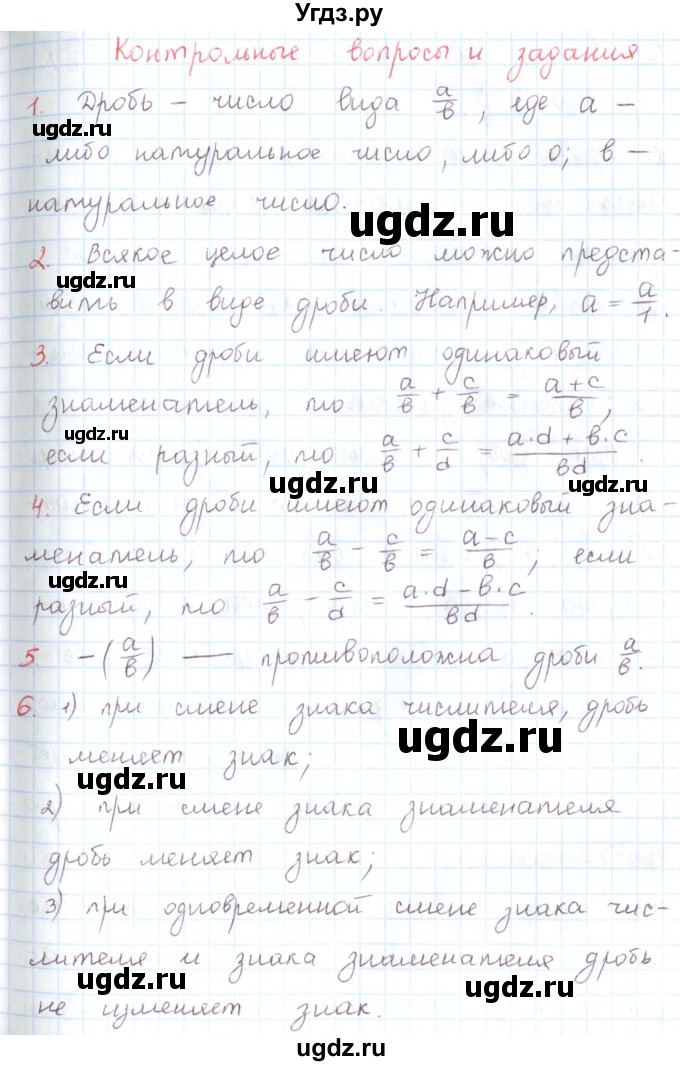 Угдз.ру
Контрольные вопросы и задания
1. Дробь – число вида a/в, где a –
ugdz.ru
либо натуральное число, либо 0; в –
натуральное число.
ugdz.ru
2. Всякое целое число можно предста-
ugdz.ru
вить в виде дроби. Например, a = a/1.
3. Если дроби имеют одинаковый
знаменатель, то a/в + c/в = (a+c)/в;
ugdz.ru
если разный, то a/в + c/d = (a·d + в·c)/вd.
ugdz.ru
4. Если дроби имеют одинаковый зна-
менатель, то a/в – c/в = (a–c)/в; если
ugdz.ru
разный, то a/в – c/d = (a·d – в·c)/вd.
ugdz.ru
5. –(a/в) — противоположна дроби a/в.
6. 1) при смене знака числителя, дробь
ugdz.ru
меняет знак;
ugdz.ru
2) при смене знака знаменателя
дробь меняет знак;
ugdz.ru
3) при одновременной смене знака чис-
лителя и знака знаменателя дробь
ugdz.ru
ugdz.ru
не изменяет знак.
ugdz.ru